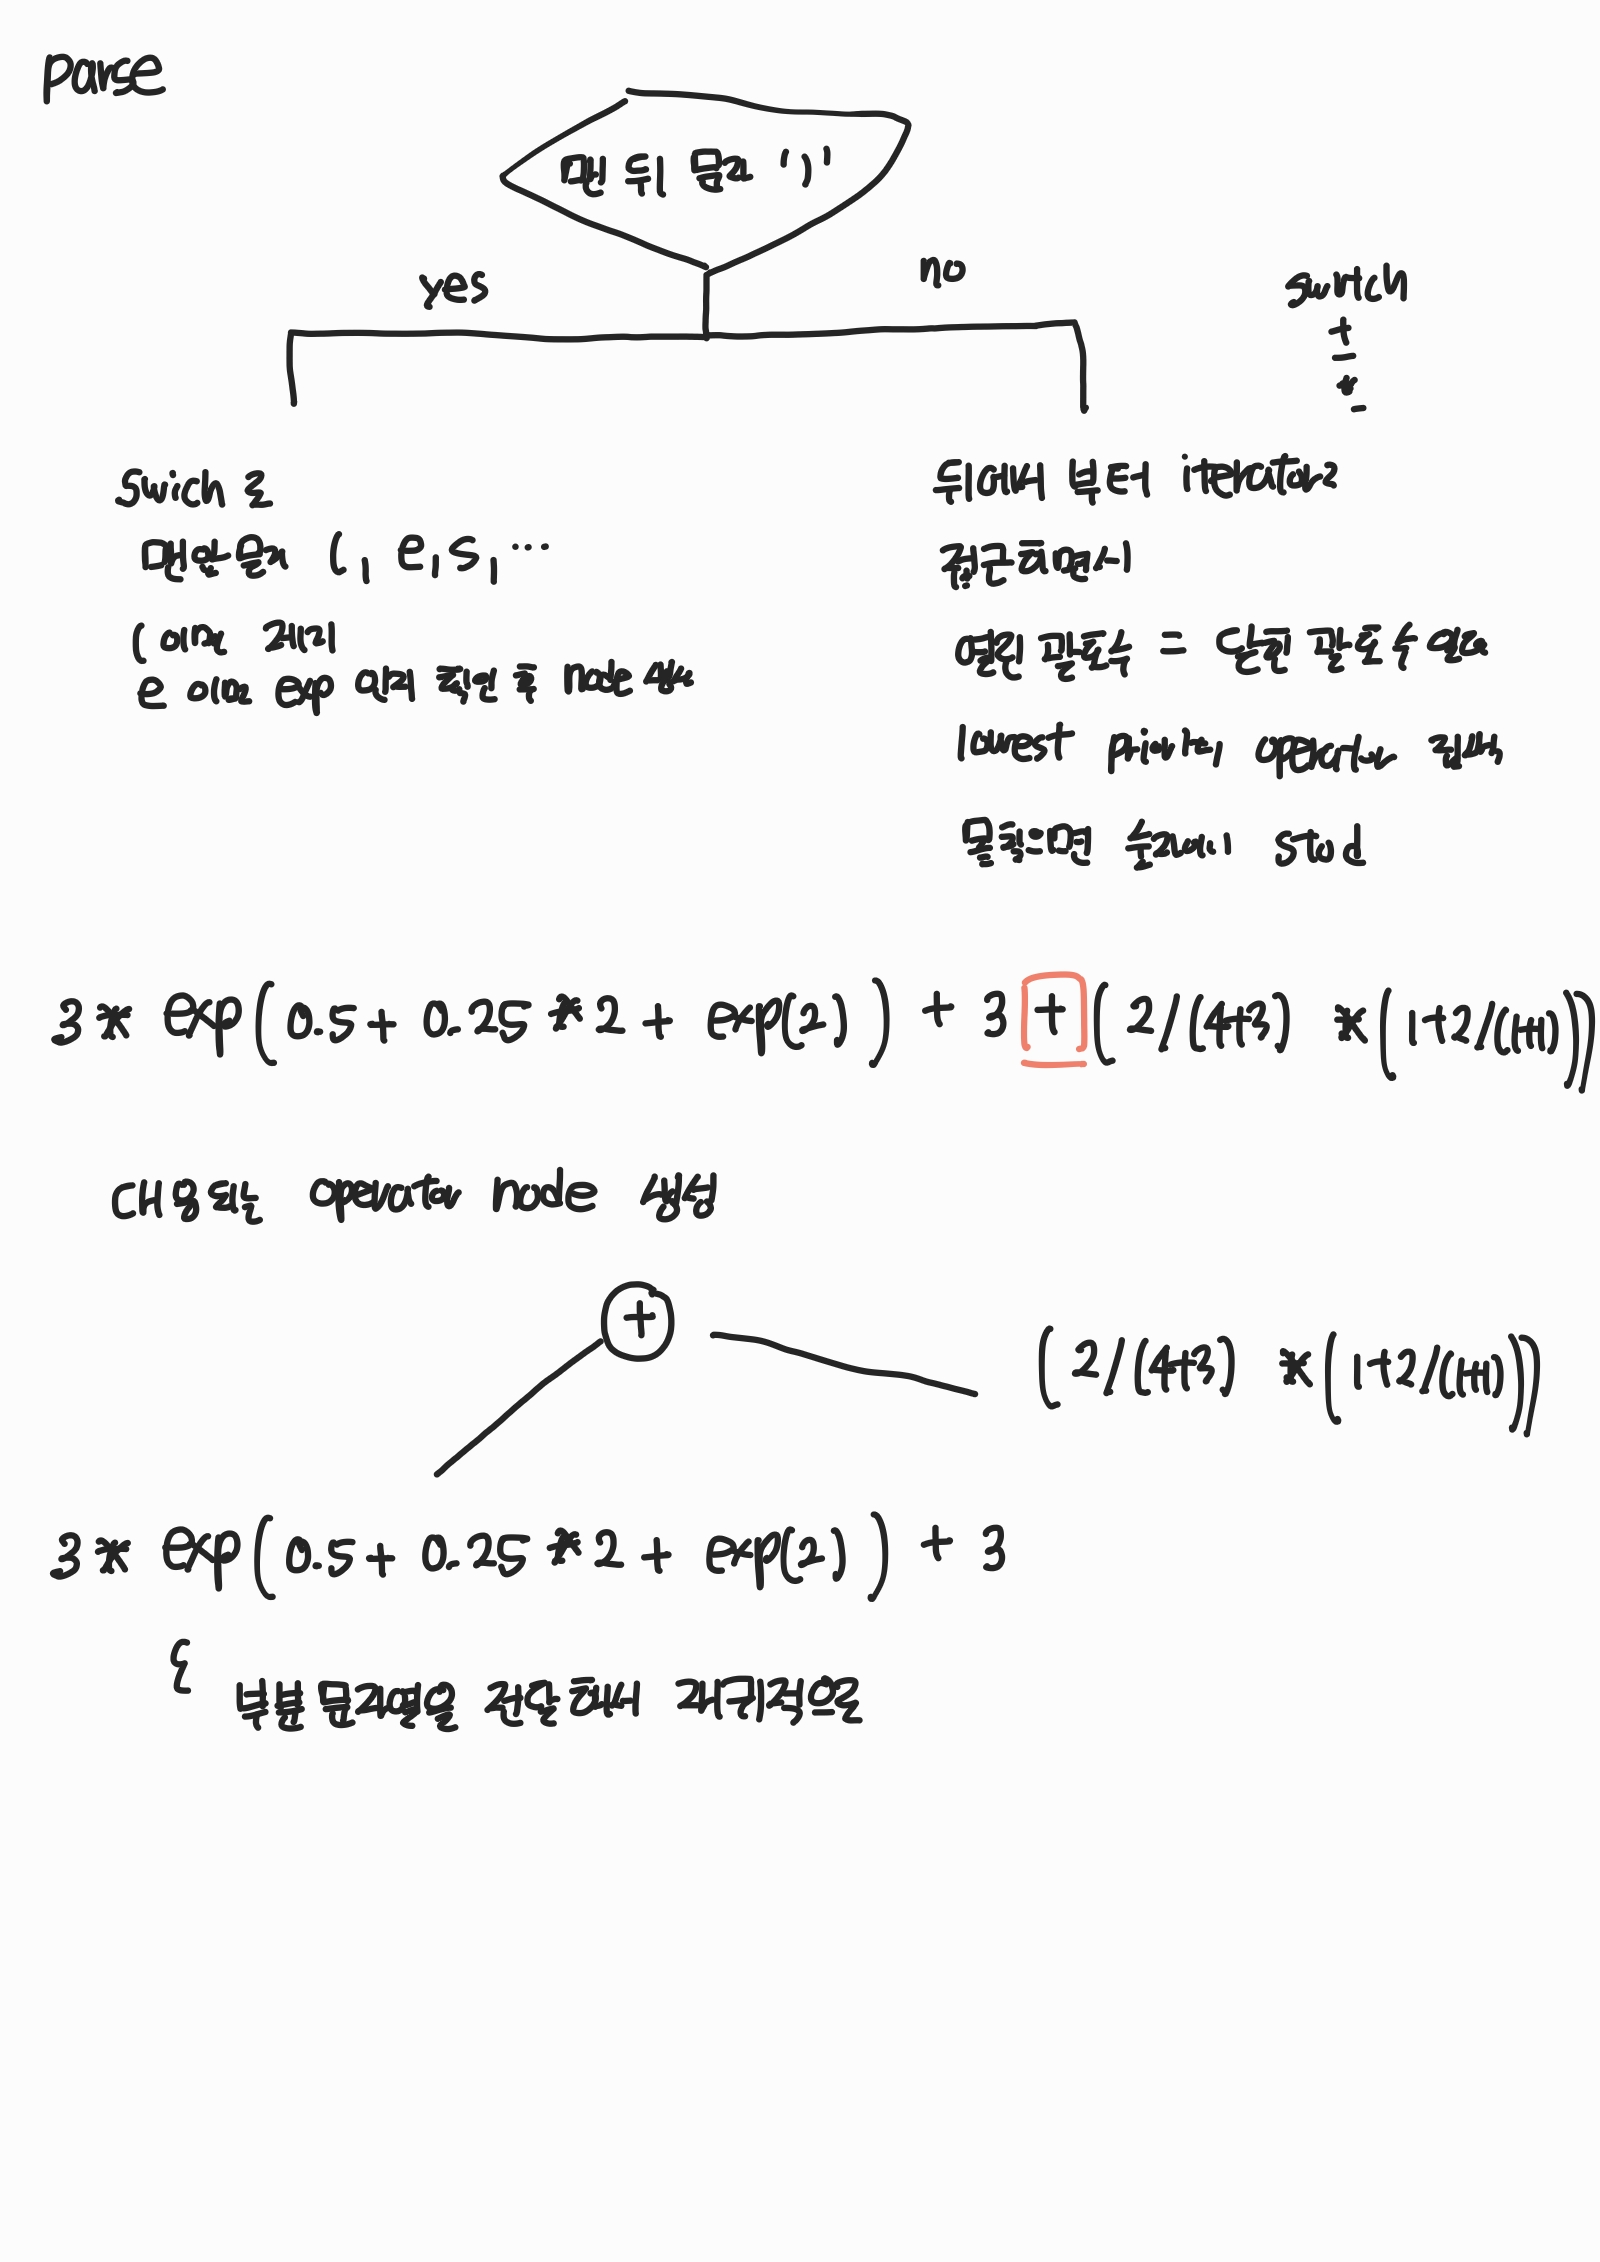 parse
맨 뒤 문자 ')'
yes
no
switch
+
-
*
-
Swich 로
맨앞문자 (, e, s, ...
( 이면 제거
e 이면 exp 인지 확인 후 node 생성
뒤에서 부터 iterator로
접근하면서
열린 괄호수 = 닫힌 괄호수 일때
lowest priority operator 검색
못찾으면 숫자이니 stod
3 * exp( 0.5 + 0.25 * 2 + exp(2) ) + 3 + ( 2/(4+3) * (1+2/(1+1)))
대응되는 operator node 생성
+
( 2/(4+3) * (1+2/(1+1)))
3 * exp( 0.5 + 0.25 * 2 + exp(2) ) + 3
부분 문자열을 전달해서 재귀적으로